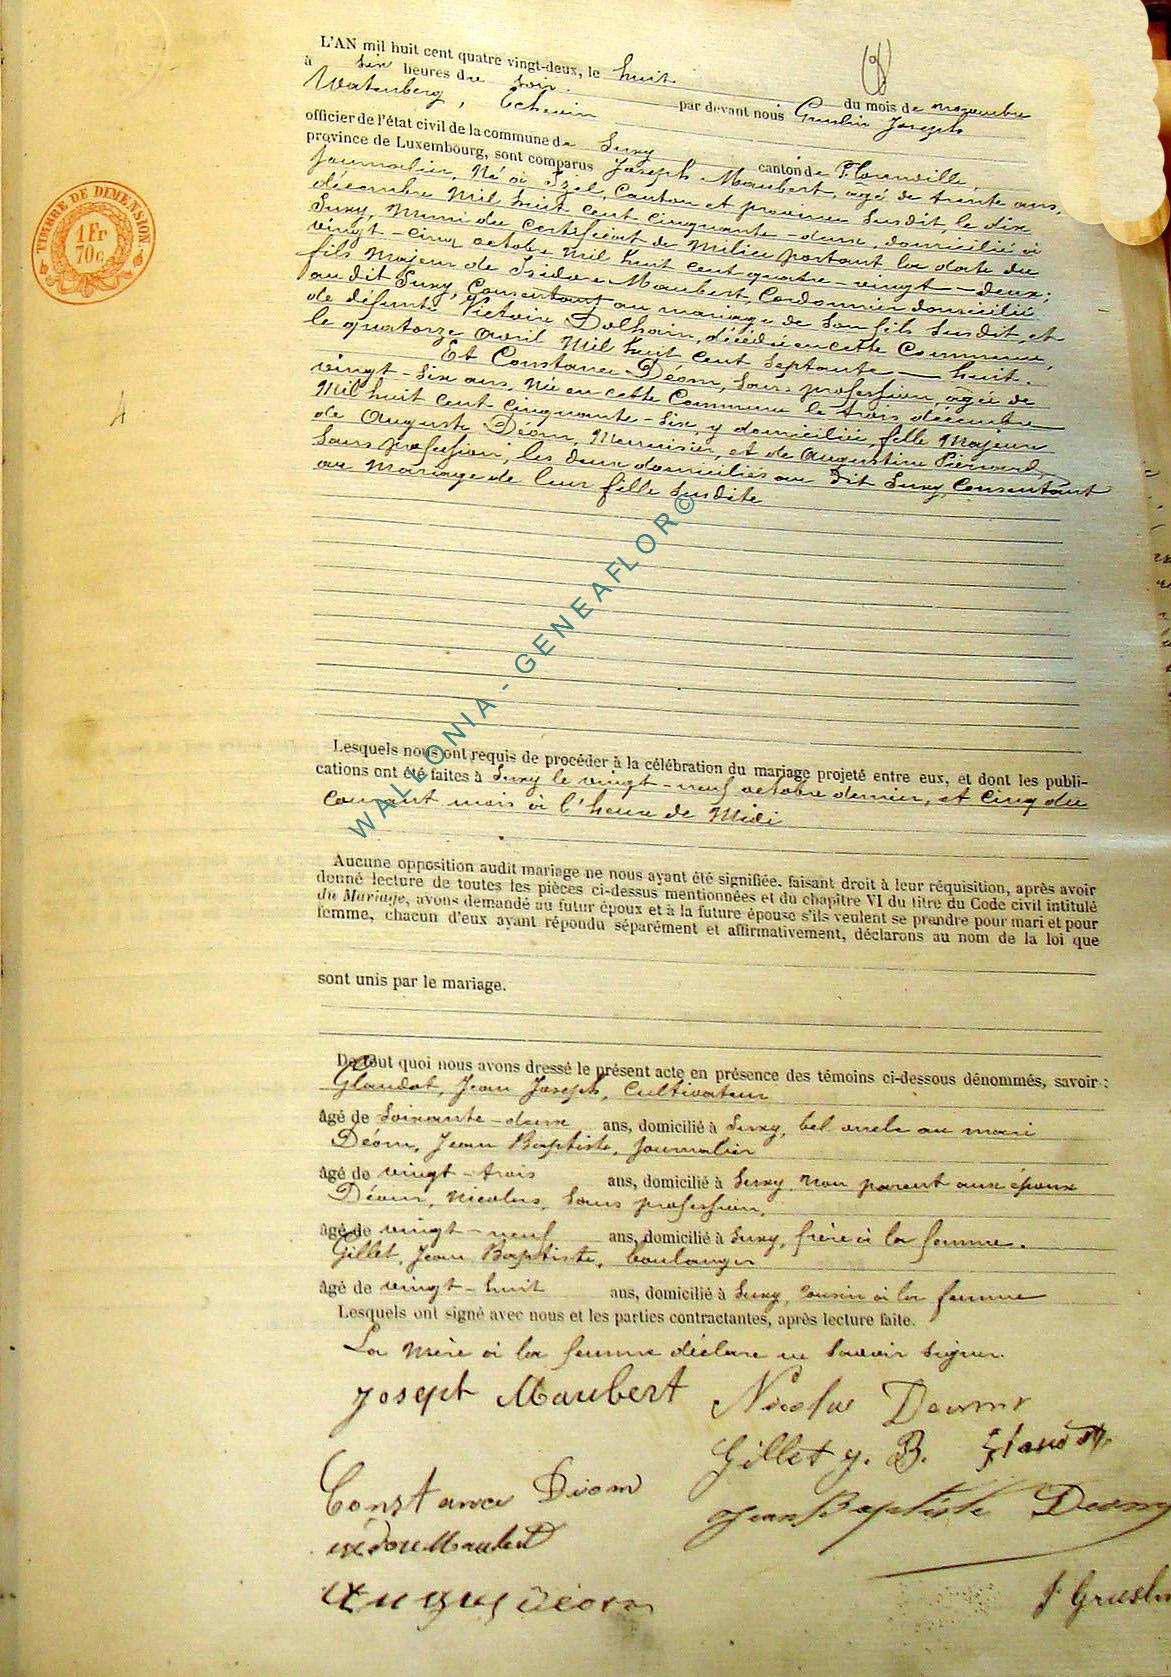 TIMBRE DE DIMENSION
1 Fr
70c.
4
L'AN mil huit cent quatre vingt-deux, le huit du mois de novembre
à six heures du soir. par devant nous Gruslin Joseph
Watenberg, Echevin
officier de l'état civil de la commune de Suxy canton de Florenville,
province de Luxembourg, sont comparus Joseph Maubert, âgé de trente ans,
journalier, Né à Izel, Canton et province susdit, le dix
décembre Mil huit cent cinquante-deux, domicilié à
Suxy, Muni du certificat de Milice portant la date du
vingt-cinq octobre Mil huit cent quatre-vingt-deux;
fils Majeur de Isidore Maubert, Cordonnier domicilié
au dit Suxy, Consentant au mariage de son fils susdit, et
de défunte Victoire Dolhain, décédée en cette Commune,
le quatorze avril Mil huit cent septante-huit.
Et Constance Déom, sans profession, âgée de
vingt-six ans, Née en cette Commune le trois décembre
Mil huit cent cinquante-six, y domiciliée, fille Majeure
de Auguste Déom, Menuisier, et de Augustine Piérard,
sans profession, les deux domiciliés au dit Suxy, consentant
au Mariage de leur fille susdite
WALLONIA - GENEAFLOR©
Lesquels nous ont requis de procéder à la célébration du mariage projeté entre eux, et dont les publi-
cations ont été faites à Suxy le vingt-neuf octobre dernier, et cinq du
courant mois à l'heure de Midi
Aucune opposition audit mariage ne nous ayant été signifiée, faisant droit à leur réquisition, après avoir
donné lecture de toutes les pièces ci-dessus mentionnées et du chapitre VI du titre du Code civil intitulé
du Mariage, avons demandé au futur époux et à la future épouse s'ils veulent se prendre pour mari et pour
femme, chacun d'eux ayant répondu séparément et affirmativement, déclarons au nom de la loi que
sont unis par le mariage.
De tout quoi nous avons dressé le présent acte en présence des témoins ci-dessous dénommés, savoir :
Glaudot, Jean Joseph, Cultivateur
âgé de soixante-deux ans, domicilié à Suxy, bel oncle au mari
Déom, Jean Baptiste, journalier
âgé de vingt-trois ans, domicilié à Suxy, Non parent aux époux
Déom, Nicolas, sans profession,
âgé de vingt-neuf ans, domicilié à Suxy, frère à la femme.
Gillet, Jean Baptiste, boulanger
âgé de vingt-huit ans, domicilié à Suxy, cousin à la femme
Lesquels ont signé avec nous et les parties contractantes, après lecture faite.
La mère à la femme déclare ne savoir signer.
Joseph Maubert Nicolas Deom
Gillet J. B. Glaudot
Constance Déom
Jean Baptiste Deom
isidore Maubert
August déom
J Gruslin